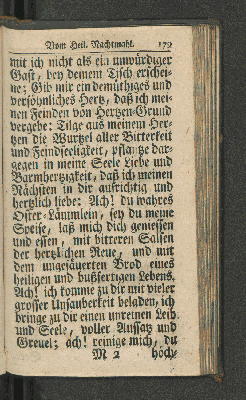 Vom Heil. Nachtmahl. 179
mit ich nicht als ein unwürdiger
Gast, bey deinem Tisch erschei-
ne; Gib mir ein demüthiges und
versöhnliches Hertz, daß ich mei-
nen Feinden von Hertzen-Grund
vergebe: Tilge aus meinem Her-
tzen die Wurtzel aller Bitterkeit
und Feindseeligkeit, pflantze dar-
gegen in meine Seele Liebe und
Barmhertzigkeit, daß ich meinen
Nächsten in dir aufrichtig und
hertzlich liebe: Ach! du wahres
Oster-Lämmlein, sey du meine
Speise, laß mich dich geniessen
und essen, mit bitteren Salsen
der hertzlichen Reue, und mit
dem ungesäuerten Brod eines
heiligen und bußfertigen Lebens.
Ach! ich komme zu dir mit vieler
grosser Unsauberkeit beladen, ich
bringe zu dir einen unreinen Leib
und Seele, voller Aussatz und
Greuel; ach! reinige mich, du
M 2 höch-